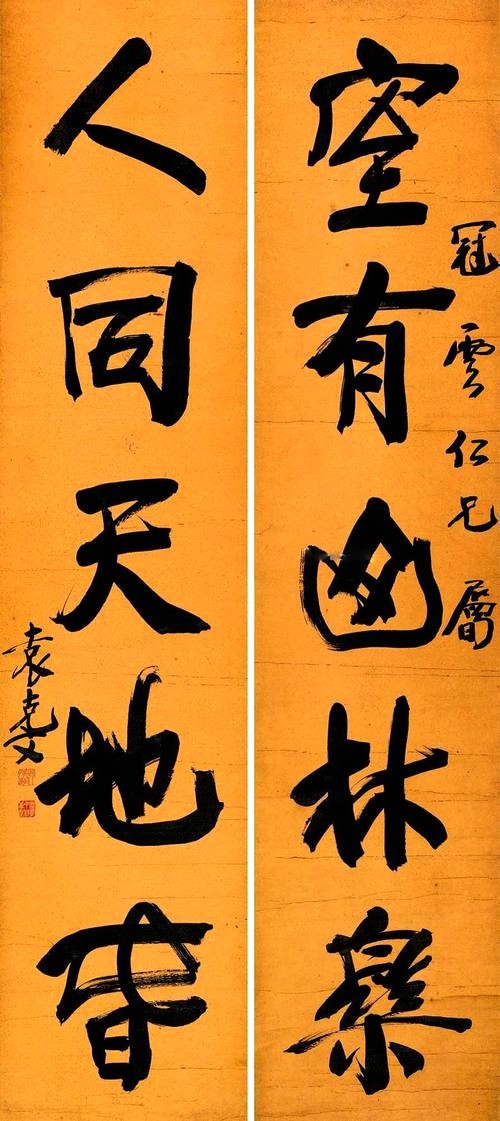 室有山林樂
冠雲仁兄屬
人同天地旾
袁克文